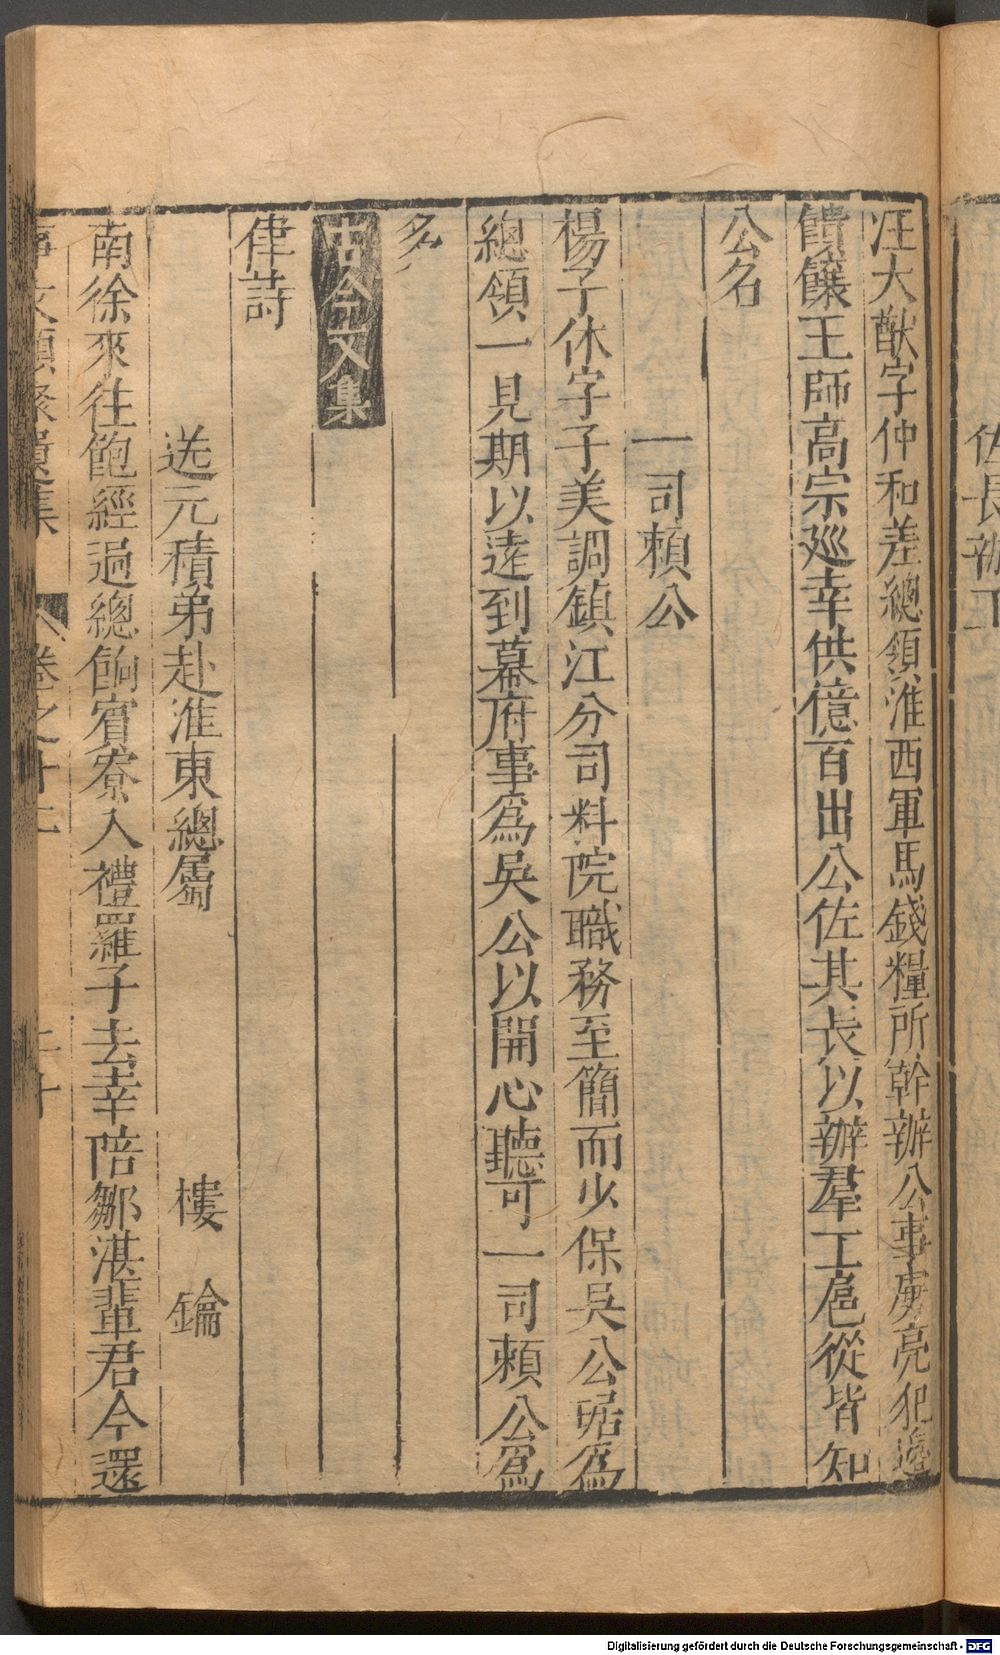 佐長辦
汪大猷字仲和差總領淮西軍馬錢糧所幹辦公事虜亮犯邊
饋饟王師高宗廵幸供億百出公佐其長以辦羣工扈從皆知
公名
一司賴公
楊子休字子美調鎮江分司料院職務至簡而少保吳公琚爲
總領一見期以遠到幕府事爲吳公以開心聽可一司賴公爲
多
古今文集
律詩
送元積弟赴淮東總屬 樓 鑰
南徐來往飽經過總餉賓寮入禮羅子去幸陪鄒湛輩君今還
事文類聚遺集 卷之十二 二十
Digitalisierung gefördert durch die Deutsche Forschungsgemeinschaft - DFG